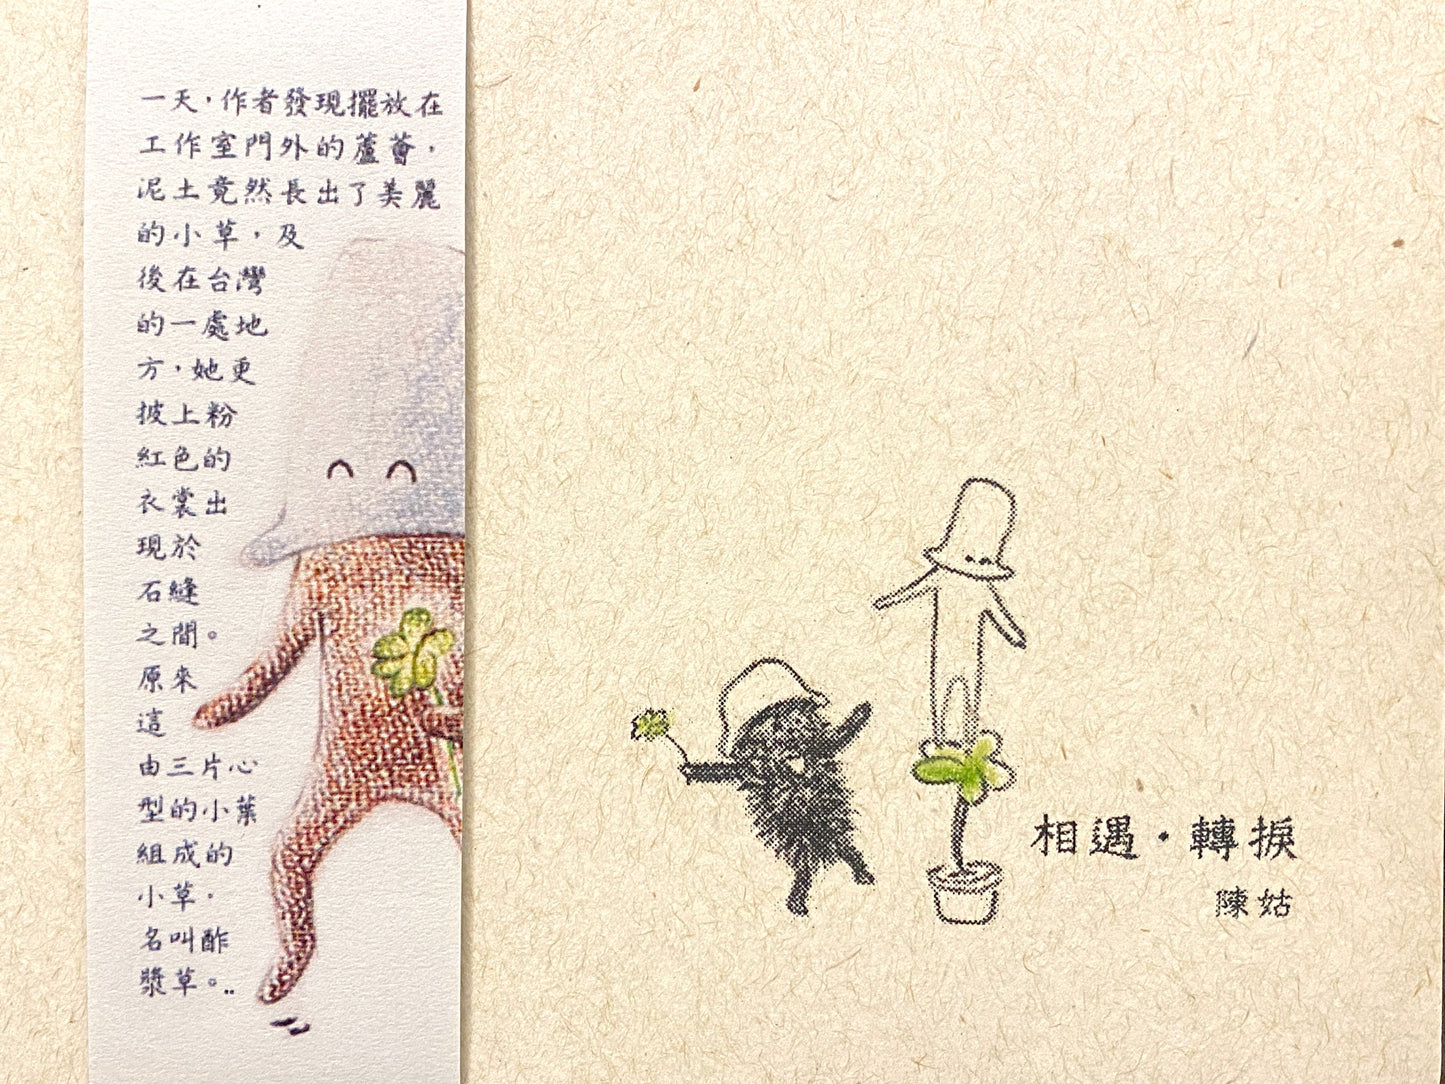 一天，作者發現擺放在
工作室門外的蘆薈，
泥土竟然長出了美麗
的小草，及
後在台灣
的一處地
方，她更
披上粉
紅色的
衣裳出
現於
石縫
之間。
原來
這
由三片心
型的小葉
組成的
小草．
名叫酢
漿草。..
相遇・轉捩
陳姑